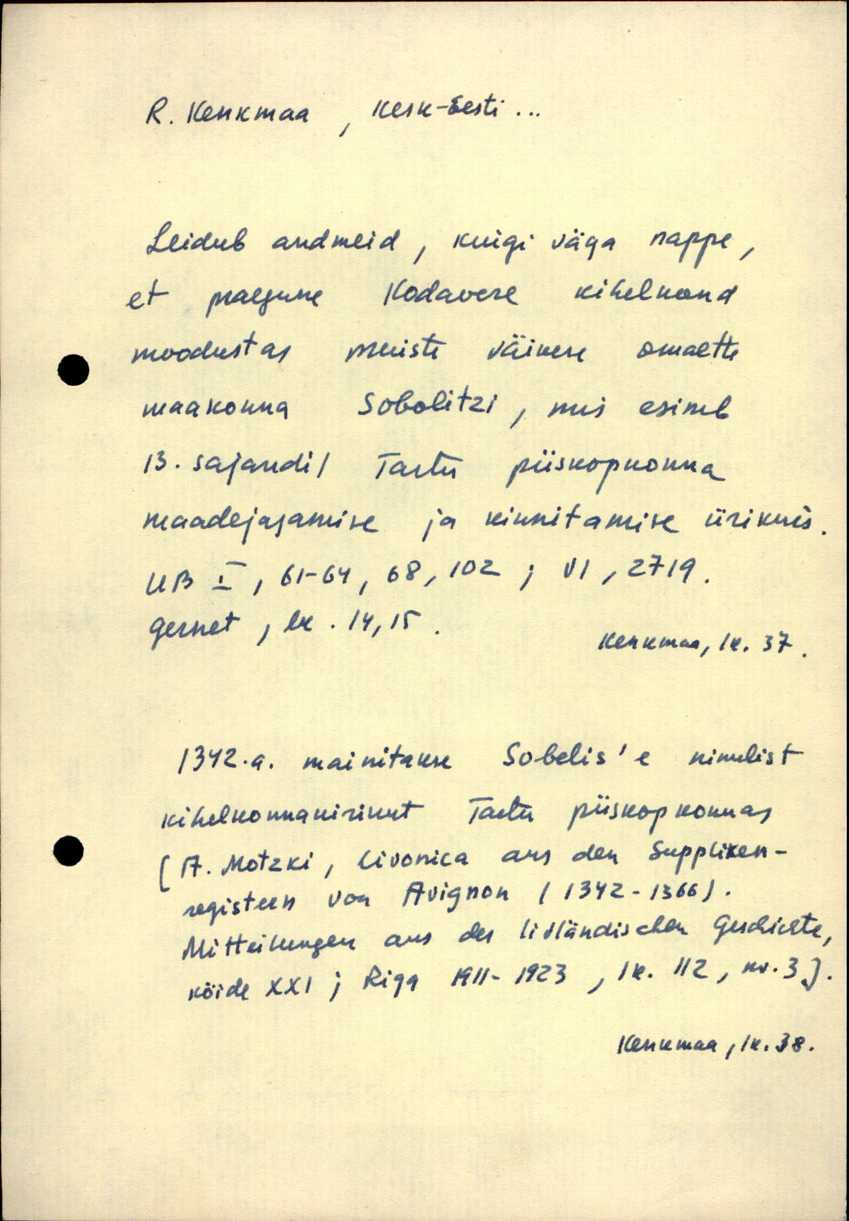 R. Kenkmaa, Kesk-Eesti ...
Leidub andmeid, kuigi väga nappe,
et praegune Kodavere kihelkond
moodustas muiste väikese omaette
maakonna Sobolitzi, mis esineb
13. sajandil Tartu piiskopkonna
maadejagamise ja kinnitamise ürikuis.
UB I, 61-64, 68, 102; VI, 2719.
Gernet, lk. 14, 15.
Kenkmaa, lk. 37.
1342.a. mainitakse Sobelis'e nimelist
kihelkonnakirikut Tartu piiskopkonnas
[A. Motzki, Livonica aus den Suppliken-
registern von Avignon (1342-1366).
Mitteilungen aus der livländischen Geschichte,
köide XXI; Riga 1911-1923, lk. 112, nr. 3].
Kenkmaa, lk. 38.